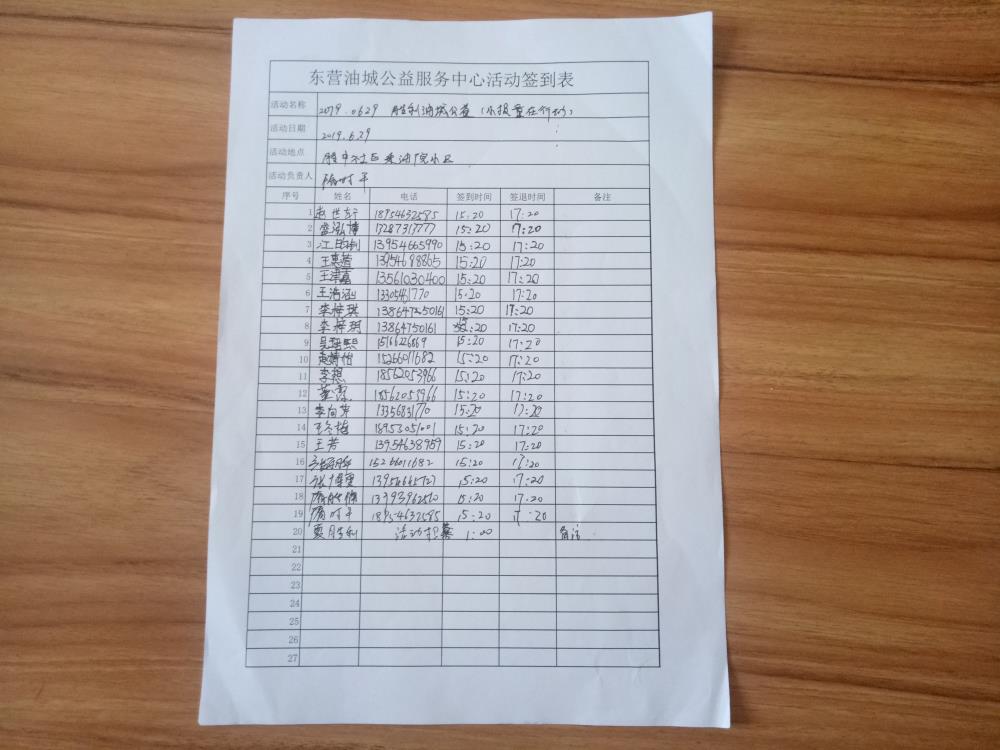 东营油城公益服务中心活动签到表
活动名称 2019.0629 胜利油城公益（小报童在行动）
活动日期 2019.6.29
活动地点 胜中社区采油院小区
活动负责人 时平
序号 姓名 电话 签到时间 签退时间 备注
1 赵世轩 18954632585 15:20 17:20
2 盛泓博 13287317777 15:20 17:20
3 13954665990 15:20 17:20
4 王惠茹 13954698865 15:20 17:20
5 王津嘉 13561030400 15:20 17:20
6 王浩涵 13305461770 15:20 17:20
7 李梓琪 15:20 17:20
8 李梓玥 13864750161 :20 17:20
9 吴瑶熙 15166226869 15:20 17:20
10 赵婧怡 15266011682 15:20 17:20
11 李想 18562053966 15:20 17:20
12 董 18562053966 15:20 17:20
13 李向苹 13356831770 15:20 17:20
14 王冬梅 18953051001 15:20 17:20
15 王芳 13954638959 15:20 17:20
16 15266011682 15:20 17:20
17 张博雯 13954645727 15:20 17:20
18 15:20 17:20
19 时平 18954632585 15:20 17:20
20 夏胜利 活动 1:00 备注
21
22
23
24
25
26
27